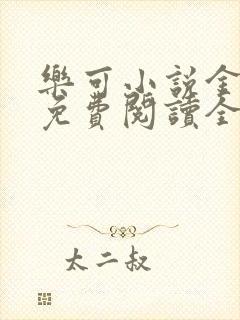 樂可小說全
免費閱讀全
太二叔